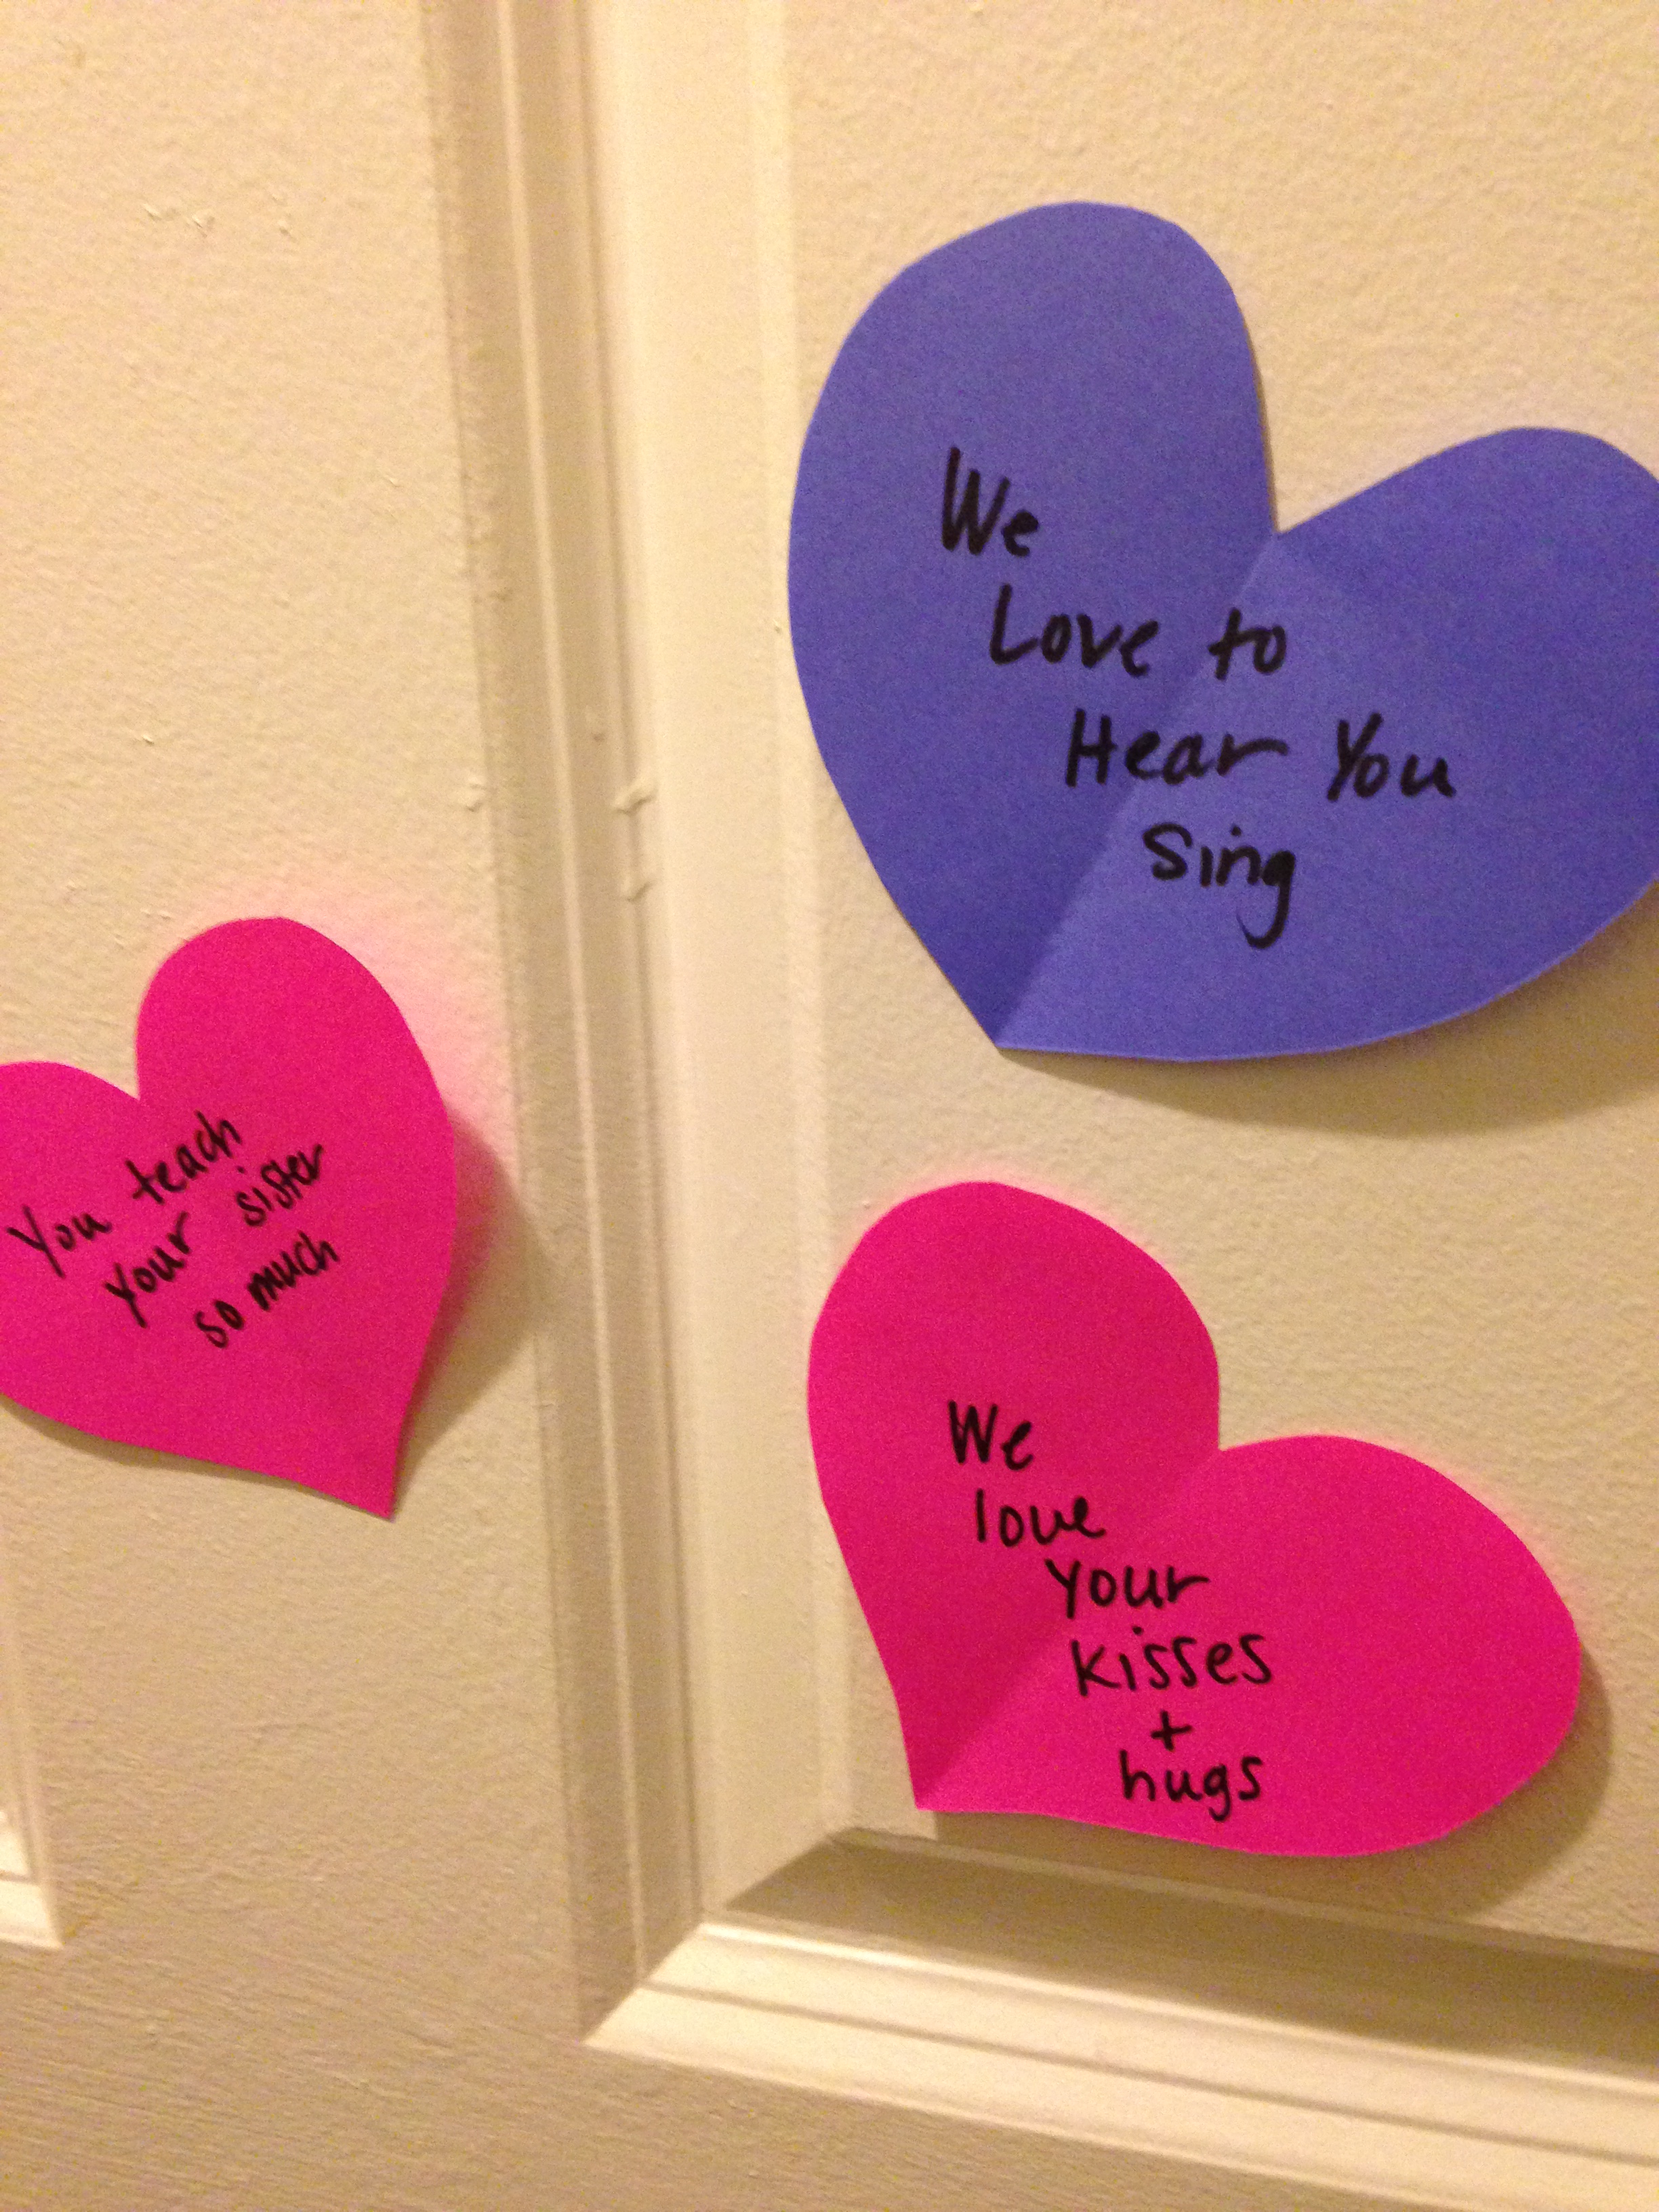 We
Love to
Hear You
Sing
You teach
your sister
so much
We
love
your
kisses
+
hugs